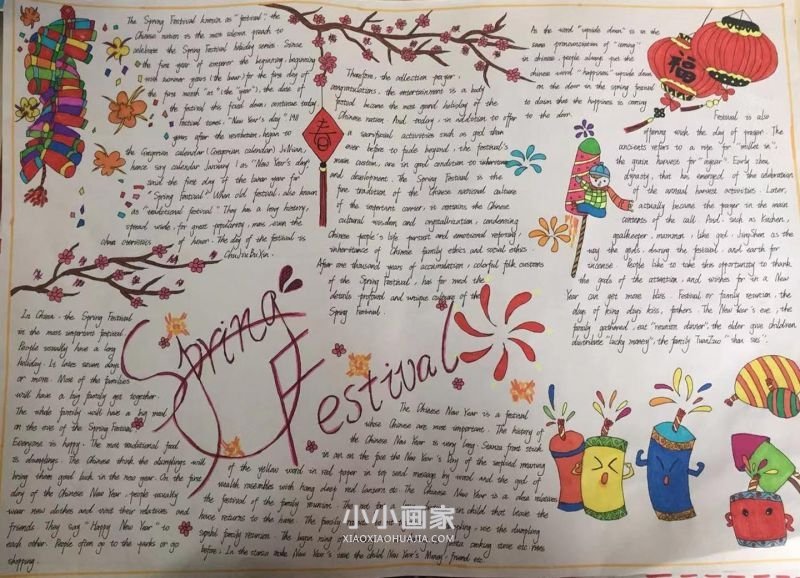 The Spring Festival known as "festival", the
Chinese nation is the most solemn
celebrate the Spring Festival holiday series. Since
the first year of emperor the beginning, beginning
with summer years (the year) for the first day of
the first month as "(the "year"), the date of
the festival this fixed down, continues today.
Festival Ferme. "New Year's day" 1911
years after the revolution, began to
the Gregorian calendar (Gregorian calendar)
January 1 as "New Year's day"
said the first day of the lunar year for
"Spring Festival" When old festival, also known
as "traditional festival". They has a long history,
spread wide, far great popularity, mass, even the
of honor. The day of the festival is
Chu Jiu Bu Xin.
春
Therefore, the collection prayer,
congratulations, the entertainment is a body
festival become the most grand holiday of the
Chinese nation. And today, in addition to offer
a sacrificial activities such as god than
ever before to fade beyond, the festival's
main custom, are in good condition to
and development. The Spring Festival is the
fine tradition of the Chinese national culture
of the important carrier, it contains the Chinese
cultural wisdom and crystallization, condensing
Chinese people's life pursuit and emotional
inheritance of Chinese family ethics and social ethics
After one thousand years of accumulation, colorful folk customs
of the Spring Festival, has formed the
details profound and unique culture of the
Spring Festival.
As the word "upside down" is in the
same pronunciation of "coming"
in chinese, people always put the
chinese word "happiness" upside down
on the door in the spring festival
to the door.
福
Festival is also
offering work the day of prayer. The
ancients refers to a ripe for "millet in",
the grain harvest for "nyear". Early zhou
dynasty, that has emerged of the celebration
of the annual harvest activities. Later,
actually became the prayer in the main
contents of the call. And. Such as Kitchen,
goalkeeper, mammon, like god, the
way the gods, during the festival, and earth for
incense. People like to take this opportunity to thank
the gods of the attention, and wishes for in a New
Year can get more bliss. Festival or family reunion, the
days of king days kiss, fathers. The New Year's eve, the
family gathered, eat "reunion dinner", the elder give children
distribute "lucky money", the family
Spring
Festival
In China, the Spring Festival
is the most important festival.
People usually have a long
holiday. It lates seven days
or more. Most of the families
will have a big family get together.
The whole family will have a big meal
on the eve of the Spring Festival
Everyone is happy. The most traditional food
is dumplings. The Chinese think the dumplings will
bring them good luck in the new year. On the first
day of the Chinese New Year, people usually
wear new clothes and visit their relatives and
friends. They say "Happy New Year" to
each other. People often go to the parks or go
shopping.
The Chinese New Year is a festival
whose Chinese are more importune. The history of
the Chinese New Year is very long.
of the yellow word in red paper in
the festival of the family
have returns to the home. The family
family reunion. The
小小画家
XIAOXIAOHUAJIA.COM